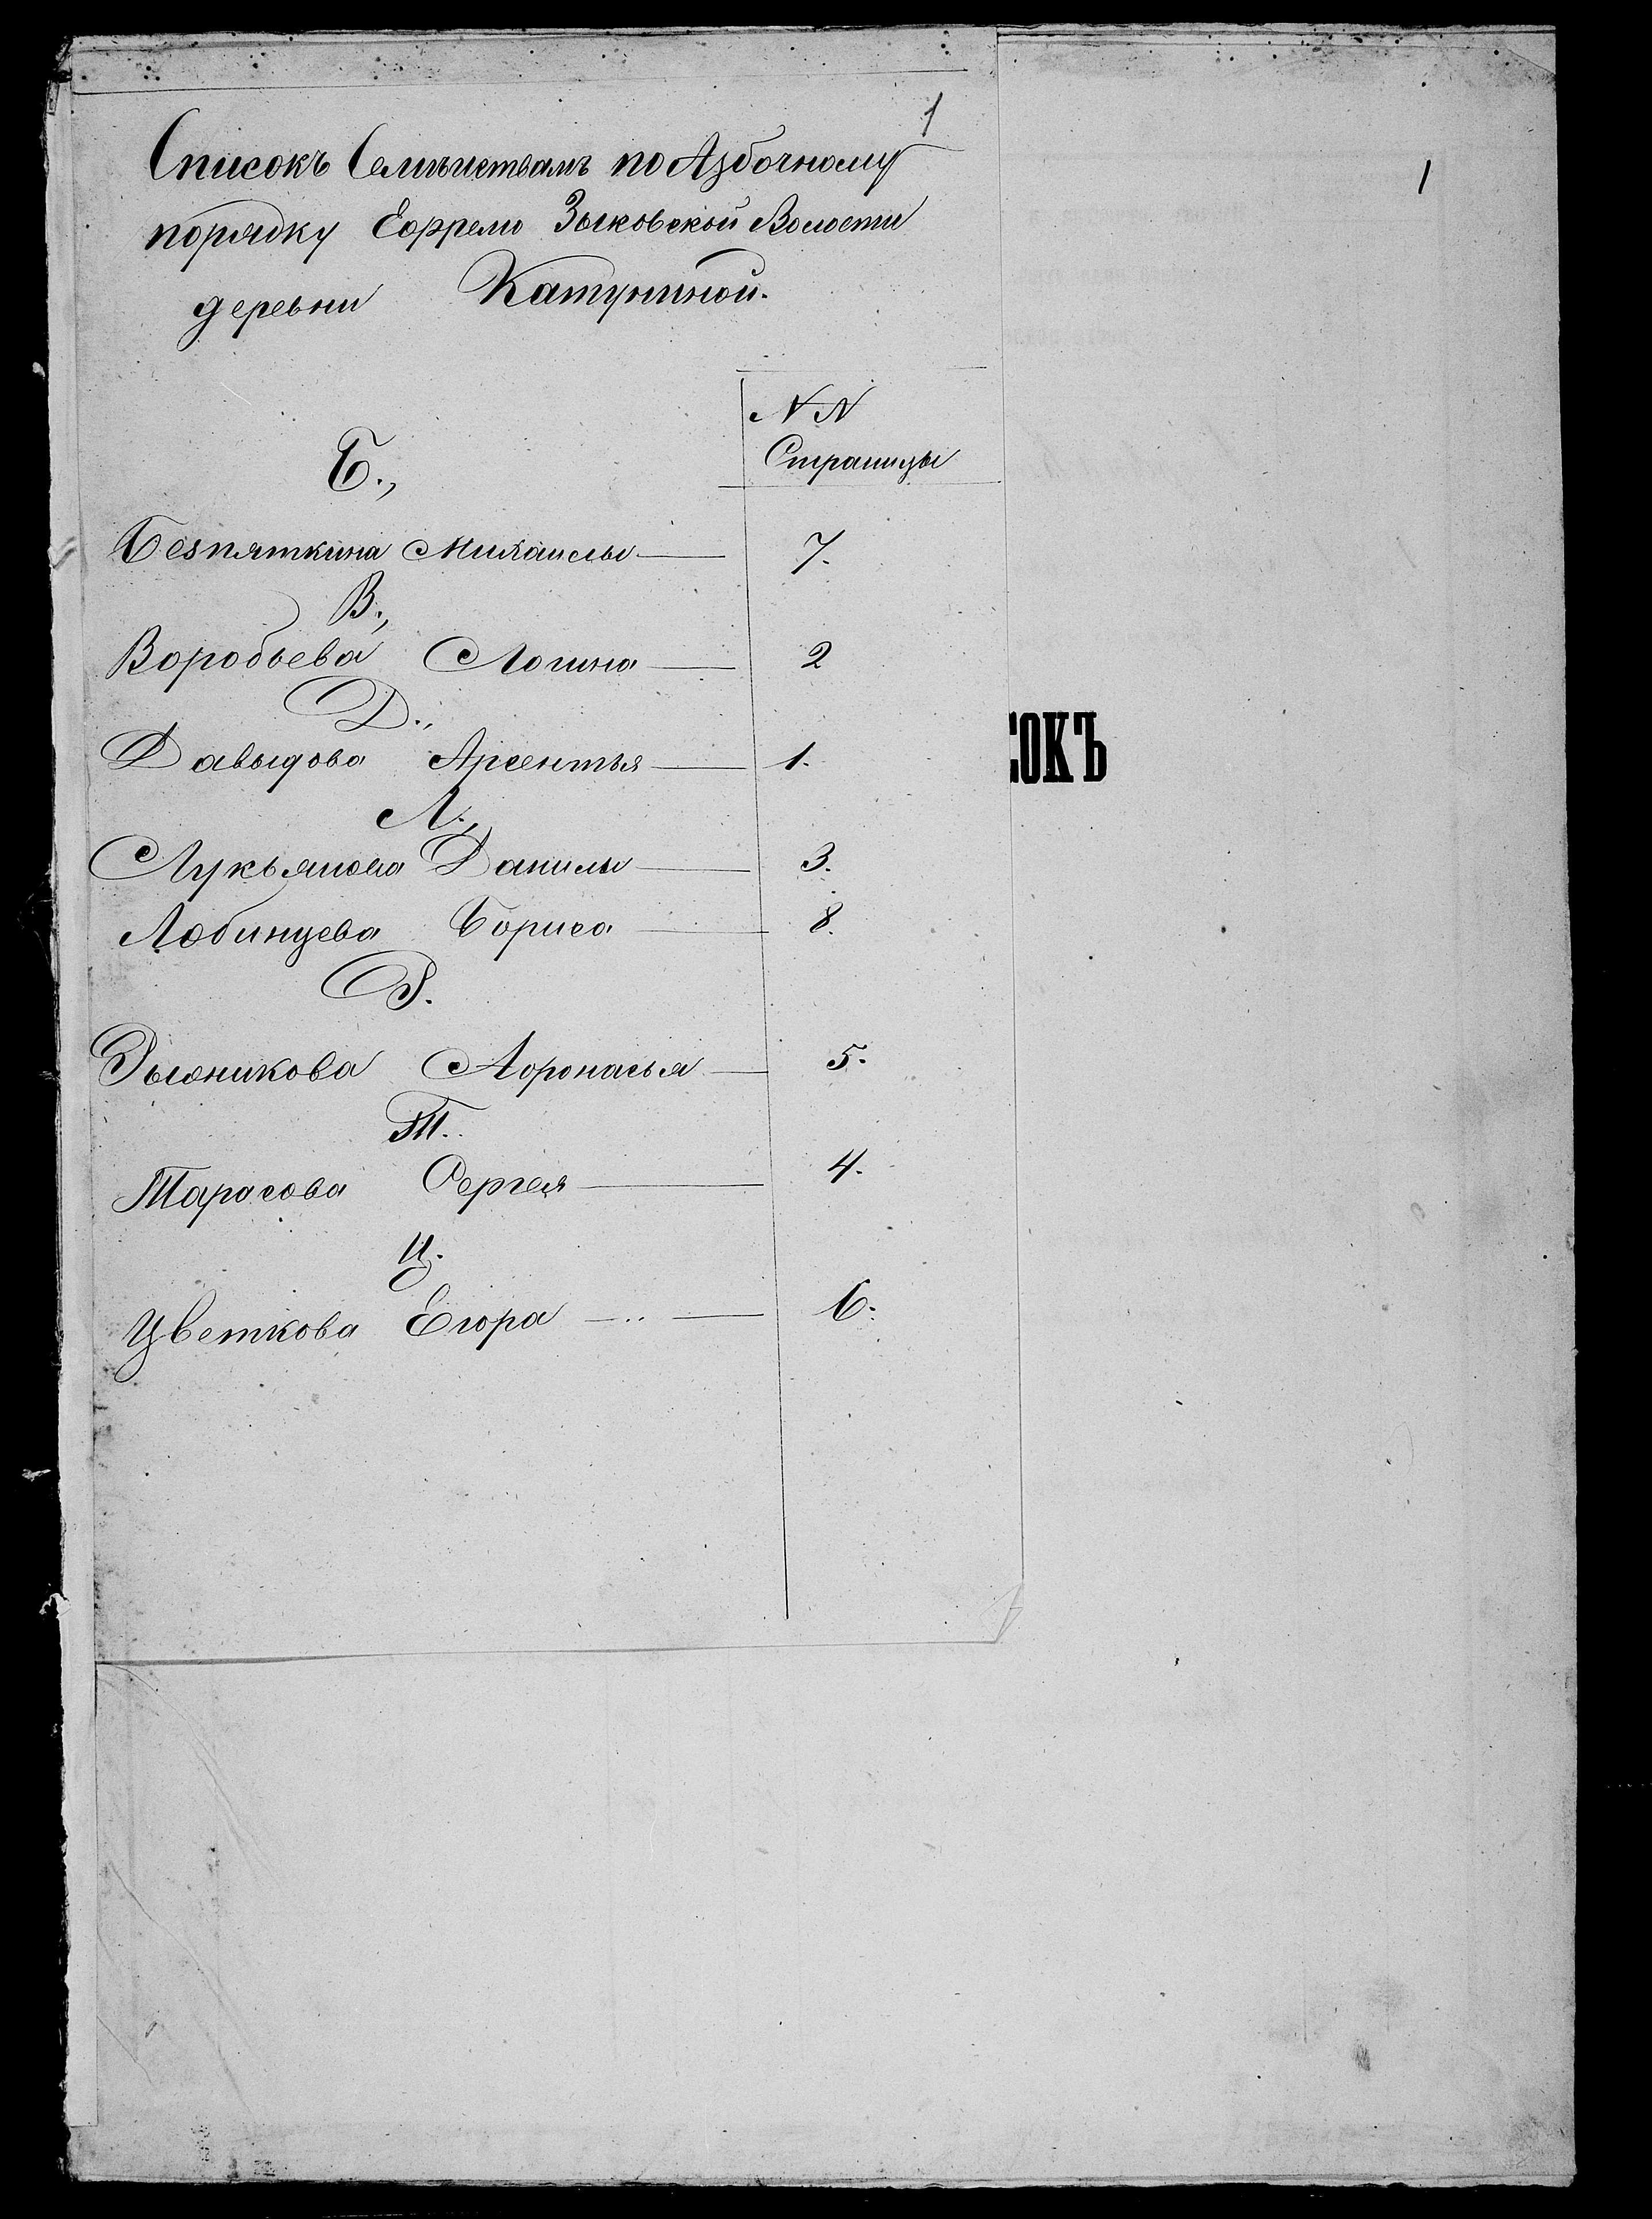 1
Списокъ Семѣиствамъ по Азбочному
порядку Ефремо Зыковской Волости
деревни Катуниной.
N N
Страницы
Б.,
Безпяткина Михаилы 7.
В.,
Воробьева Логина 2
Д.,
Давыдова Арсентья 1.
Л.,
Лукьянова Данилы 3.
Лобинцева Бориса 8.
Р.
Рыжникова Афонасья 5.
Т.
Тарасова Сергея 4.
Ц.
Цветкова Егора 6.
1
СОКЪ